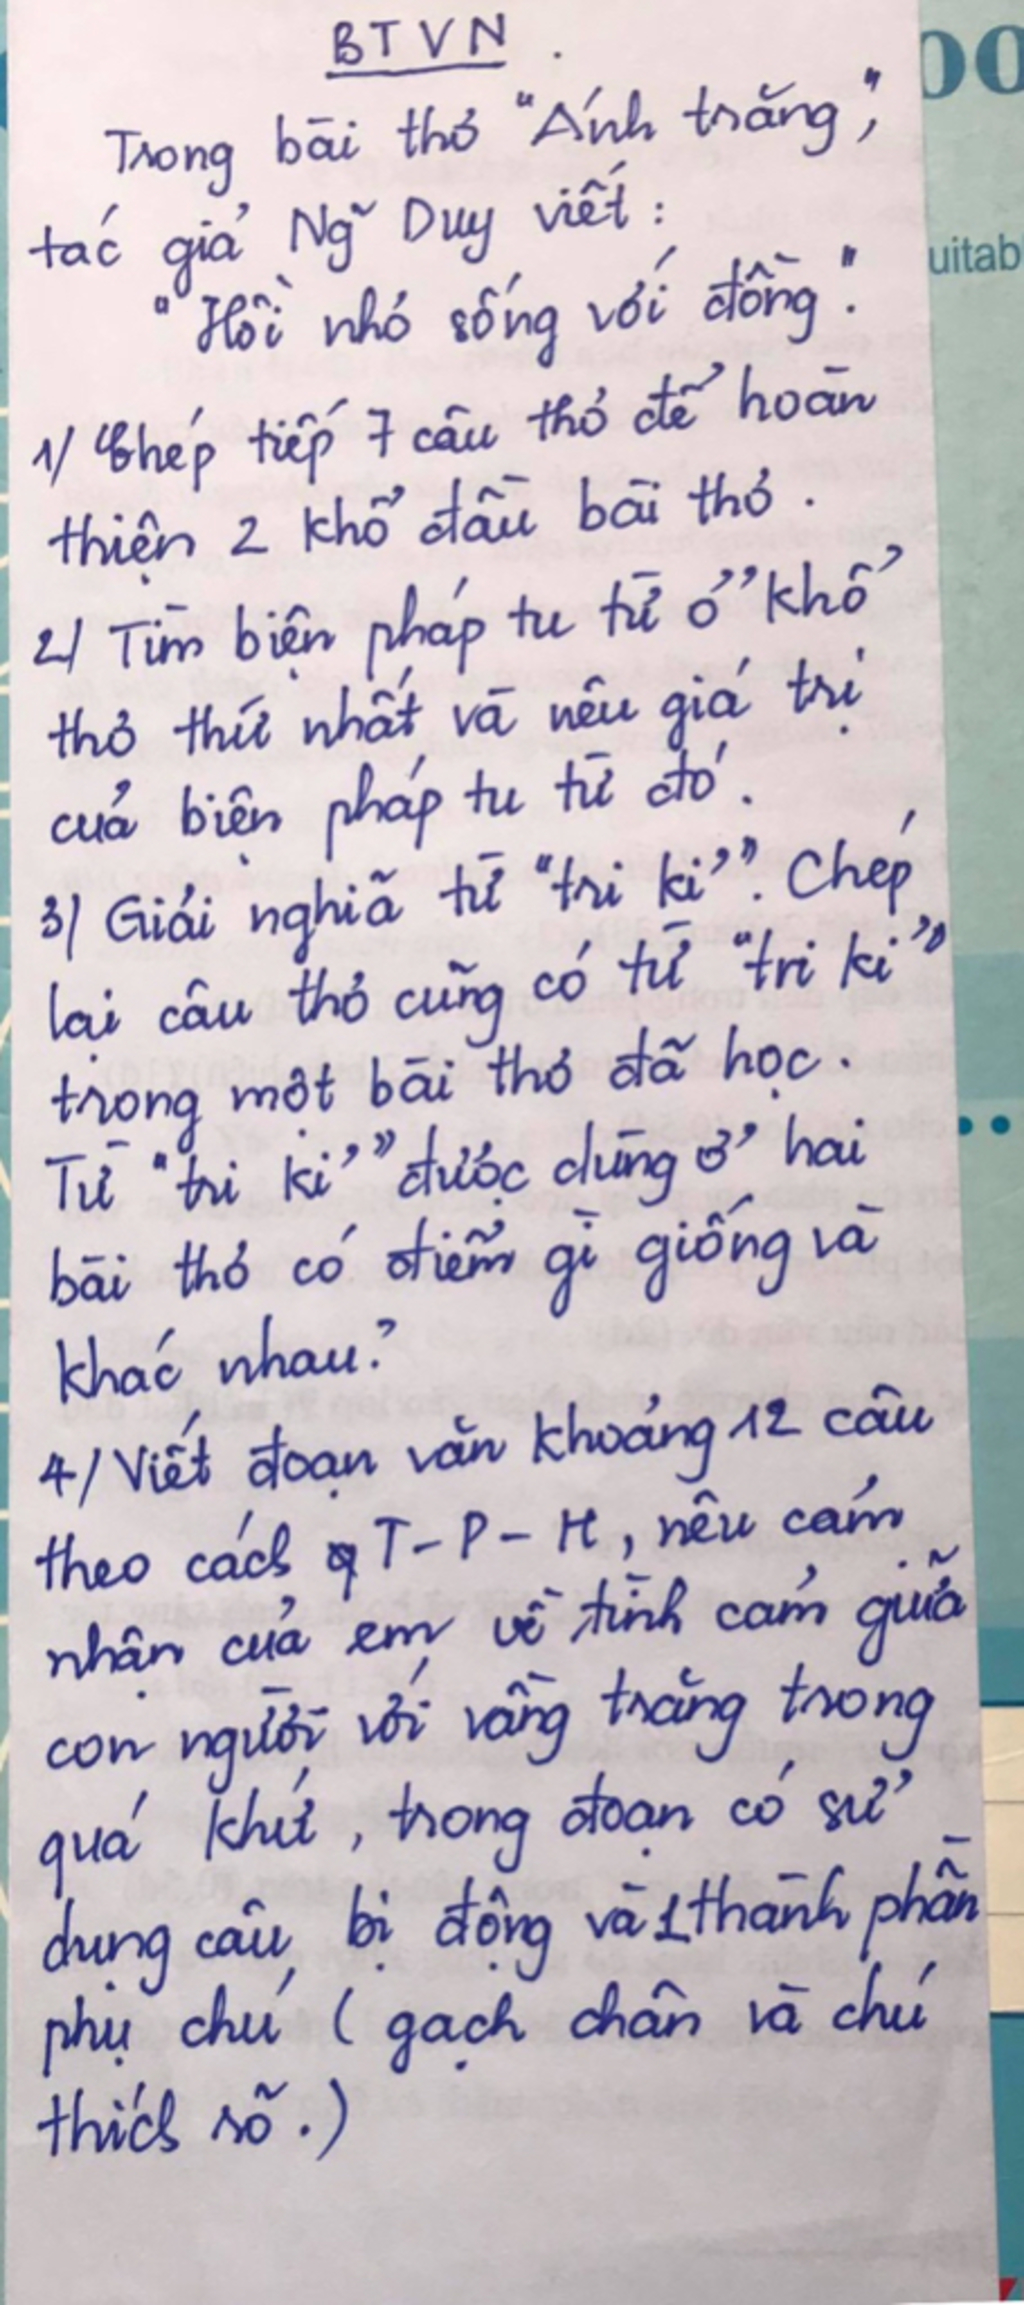 BTVN.
Trong bài thơ "Ánh trăng",
tác giả Ng~ Duy viết:
"Hồi nhỏ sống với đồng".
1/ Chép tiếp 7 câu thơ để hoàn
thiện 2 khổ đầu bài thơ.
2/ Tìm biện pháp tu từ ở khổ
thơ thứ nhất và nêu giá trị
của biện pháp tu từ đó.
3/ Giải nghĩa từ "tri kỉ". Chép
lại câu thơ cũng có từ "tri kỉ"
trong một bài thơ đã học.
Từ "tri kỉ" được dùng ở hai
bài thơ có điểm gì giống và
khác nhau?
4/ Viết đoạn văn khoảng 12 câu
theo cách T-P-H, nêu cảm
nhận của em về tình cảm giữa
con người với vầng trăng trong
quá khứ, trong đoạn có sử
dụng câu bị động và 1 thành phần
phụ chú (gạch chân và chú
thích rõ.)
00
uitab